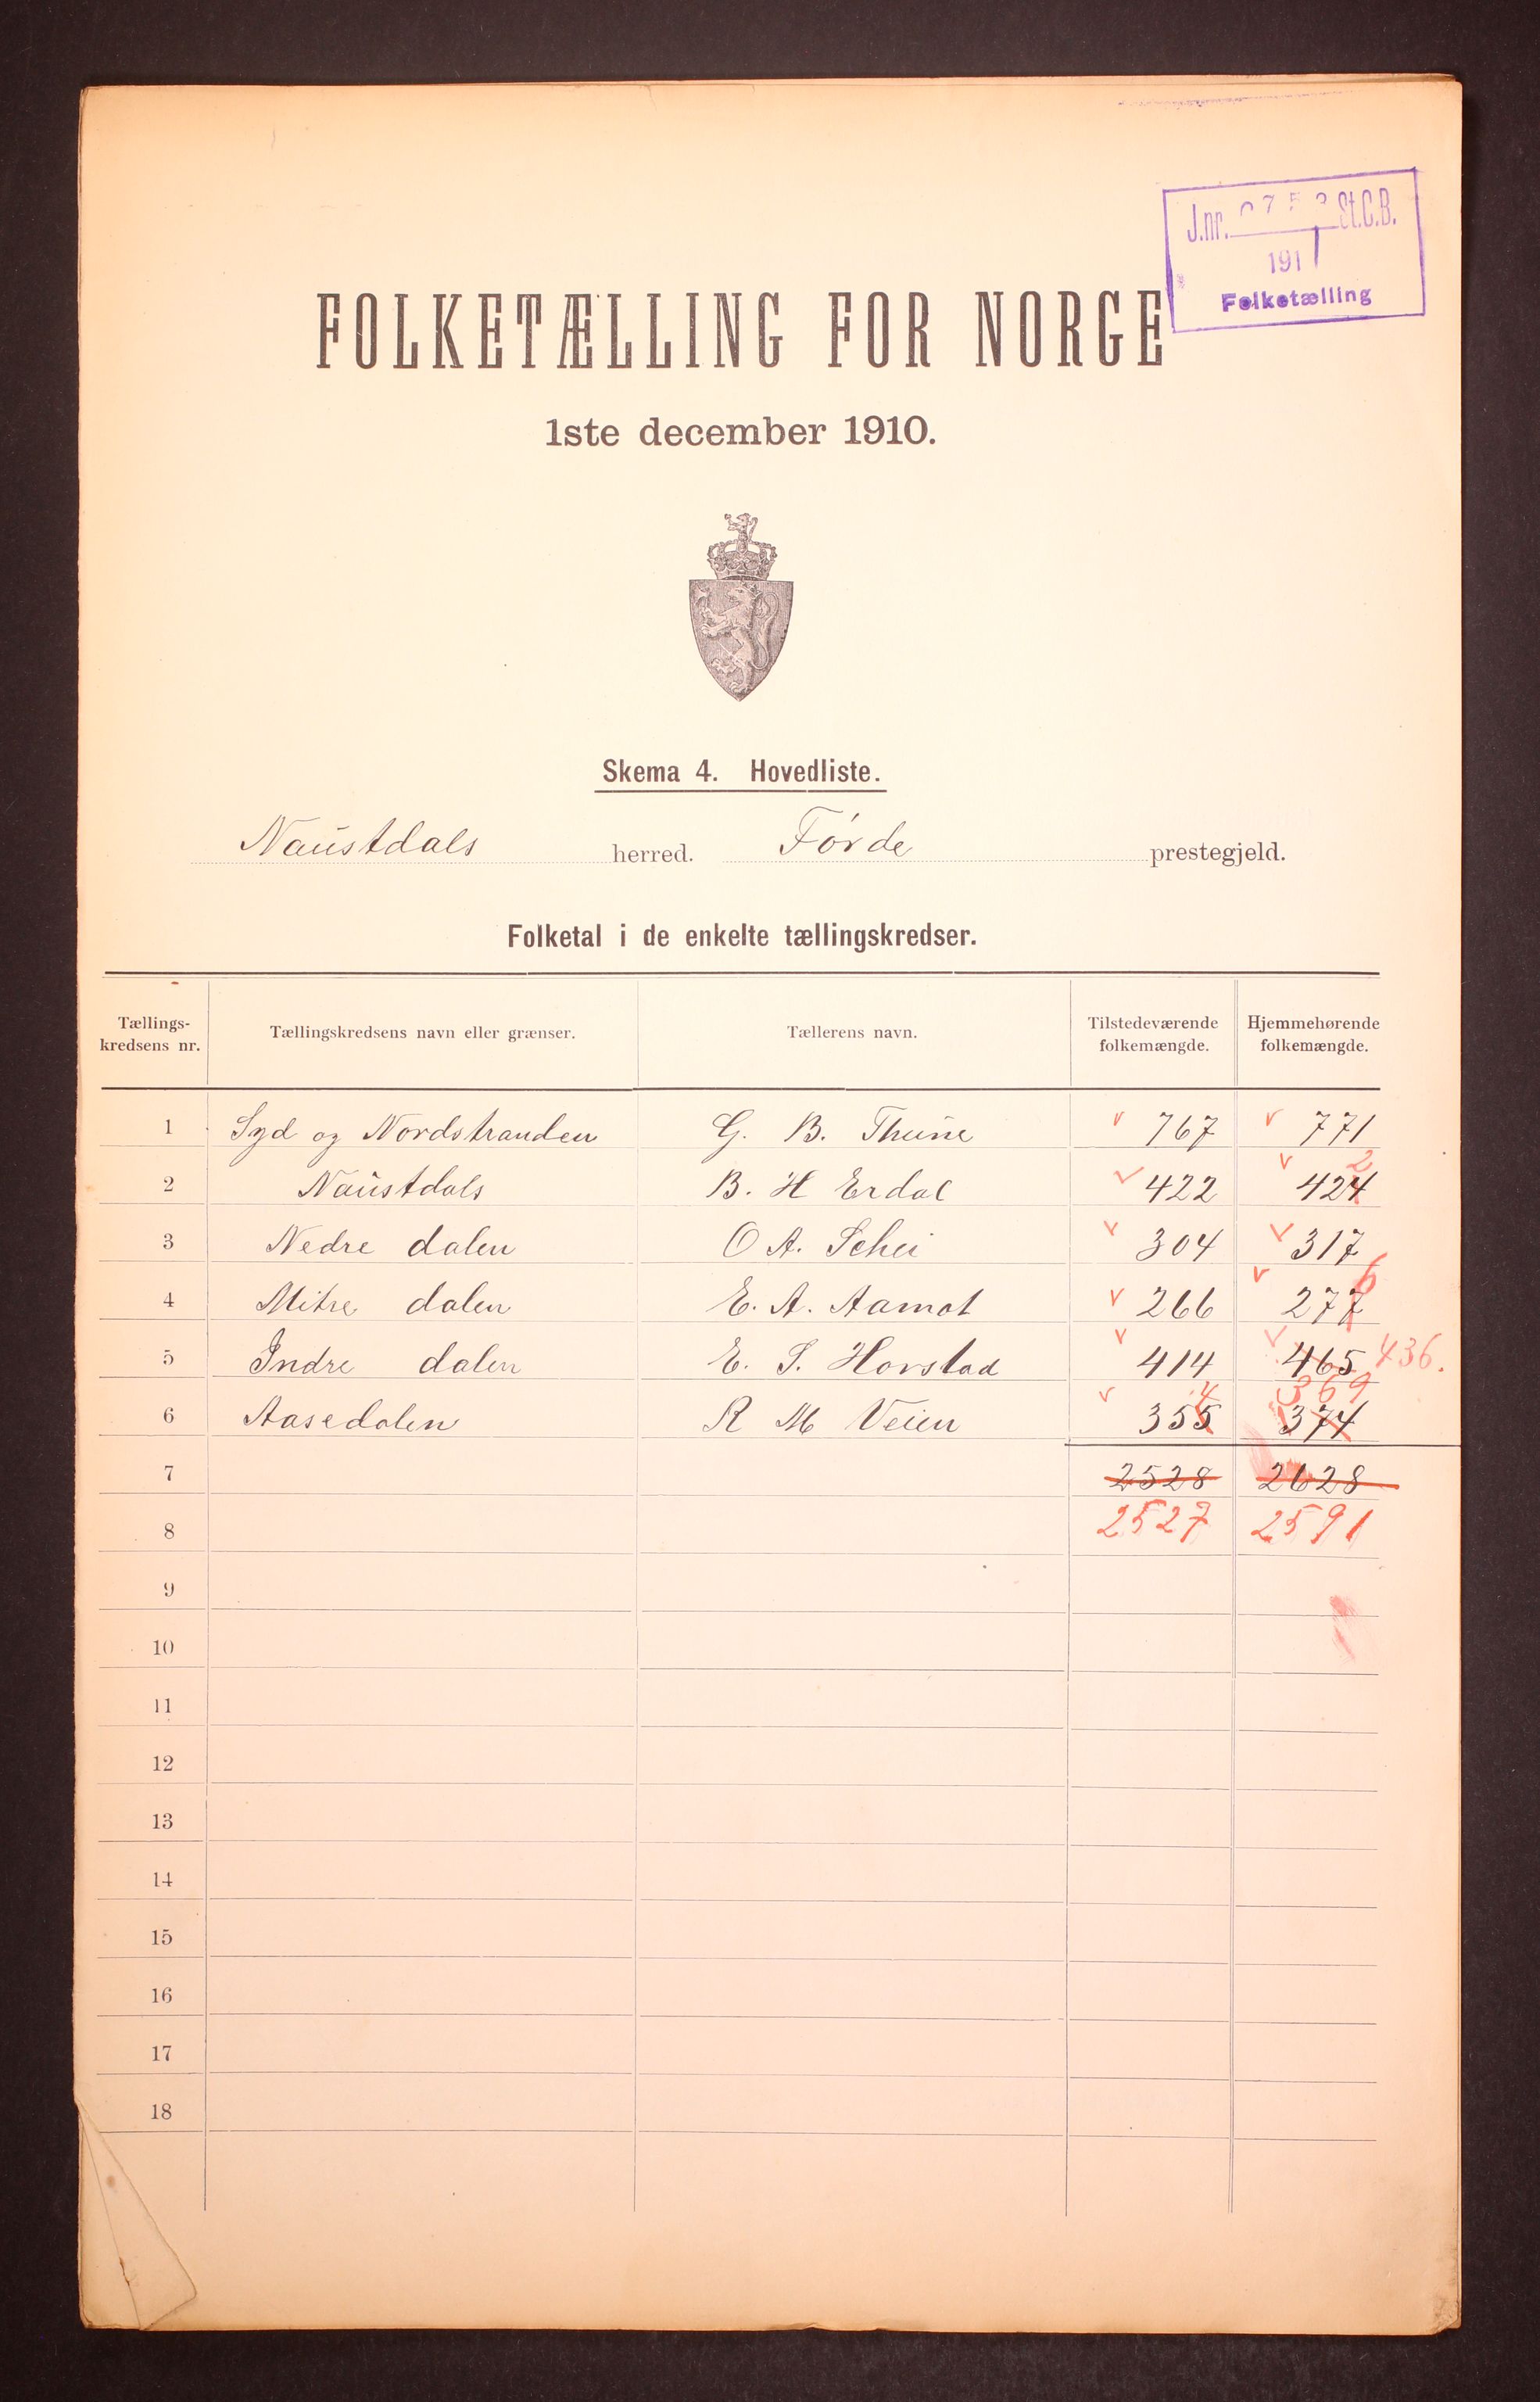 J.nr. St.C.B.
191
Folketælling
FOLKETÆLLING FOR NORGE
1ste december 1910.
Skema 4. Hovedliste.
Naustdals herred. Førde prestegjeld.
Folketal i de enkelte tællingskredser.
Tællings-kredsens nr. Tællingskredsens navn eller grænser. Tællerens navn. Tilstedeværende folkemængde. Hjemmehørende folkemængde.
1 Syd og Nordstranden G. B. Thune v 767 v 771
2 Naustdals B. H Erdal v 422 v 424 2
3 Nedre dalen O A. Schei v 304 v 317
4 Mitre dalen E. A. Aamot v 266 v 277 6
5 Indre dalen E. S. Horstad v 414 v 465 436.
6 Aasedalen R M Veien v 355 4 374 369
7 2528 2628
8 2527 2591
9
10
11
12
13
14
15
16
17
18